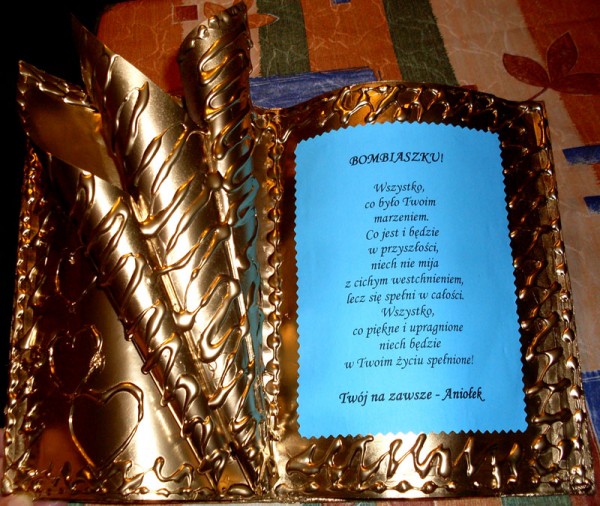 BOMBIASZKU!
Wszystko,
co było Twoim
marzeniem.
Co jest i będzie
w przyszłości,
niech nie mija
z cichym westchnieniem,
lecz się spełni w całości.
Wszystko,
co piękne i upragnione
niech będzie
w Twoim życiu spełnione!
Twój na zawsze - Aniołek